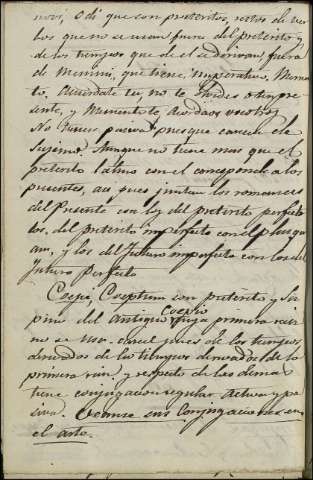 novi, Odi que son preteritos, restos de ver
bos que no se usan fuera del preterito y
de los tiempos que de el se derivan, fuera
de Memini, que tiene, imperativo, Memen
to. Acuerdate tu, no te olvides
sente, y Mementote Acordaos vosotros
No tienen pasiva presque carecen de
Supino. Aunque no tiene mas que el
preterito latino con el corresponde a los
presentes, asi pues juntan los romances
del Presente con los del preterito perfec
to, del preterito imperfecto con el plusqu
am, y los del Futuro imperfecto con los del
Futuro Perfecto
Coepi, Coeptum son preterito y Su
pino del antiguo Coepio cuya primera raiz
no se usa. Carece pues de los tiempos
derivados de la
primera raiz, y respecto de las demas
tiene conjugacion regular Activa y pa
siva. Veanse sus Conjugaciones en
el arte.